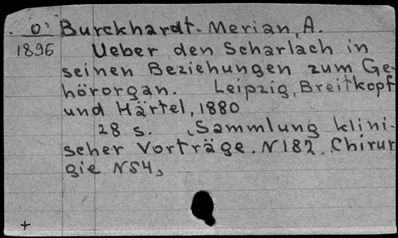 O Burckhardt-Merian, A.
1896 Ueber den Scharlach in
seinen Beziehungen zum Ge-
hörorgan. Leipzig, Breitkopf
und Härtel, 1880
28 s. (Sammlung klini-
scher Vorträge. N182. Chirur
gie N54,
+